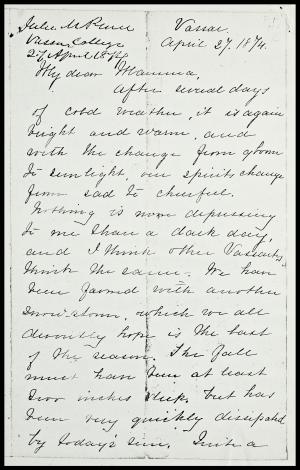 Julia M. Pease
Vassar College
27 April 1874
Vassar,
April 27. 1874.
My dear Mamma,
After several days
of cold weather, it is again
bright and warm, and
with the change from gloom
to sunlight, our spirits change
from sad to cheerful.
Nothing is more depressing
to me than a dark day,
and I think other Vassarites
think the same. We have
been favored with another
snow storm, which we all
devoutly hope is the last
of the season. The fall
must have been at least
two inches deep, but has
been very quickly dissipated
by today's sun. Quite a